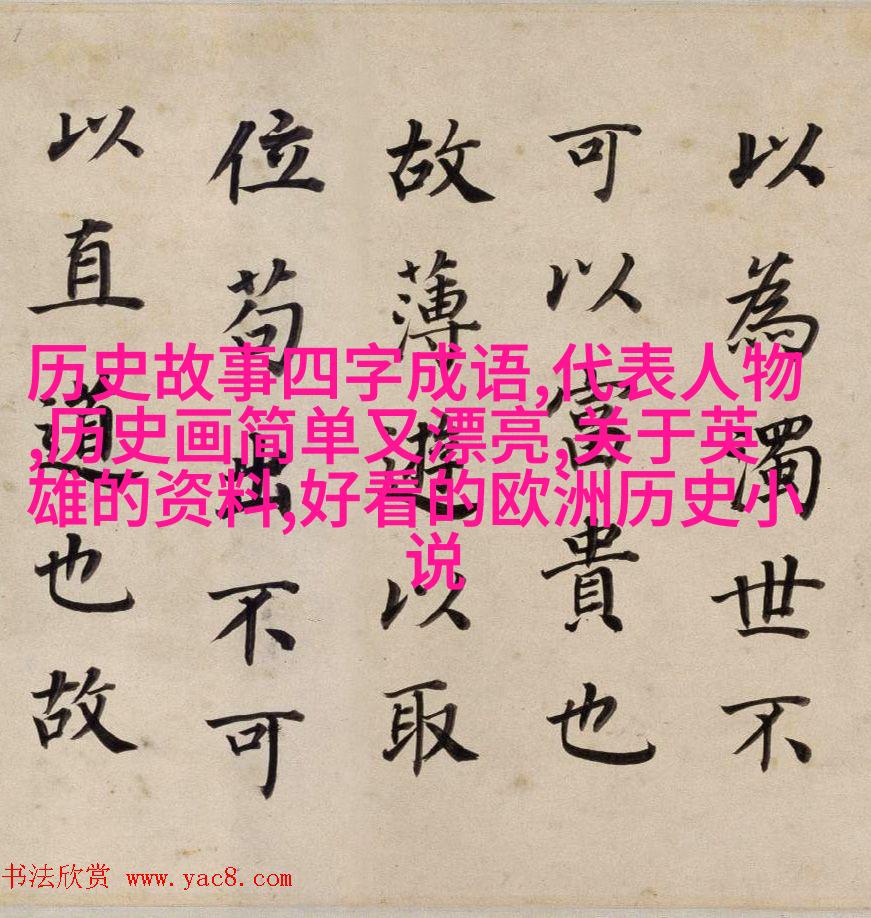 以為濁世不
可以富貴也
故薄遊以取
位苟出不可
以直道也故
历史故事四字成语,代表人物
,历史画简单又漂亮,关于英
雄的资料,好看的欧洲历史小
说
书法欣赏 www.yac8.com